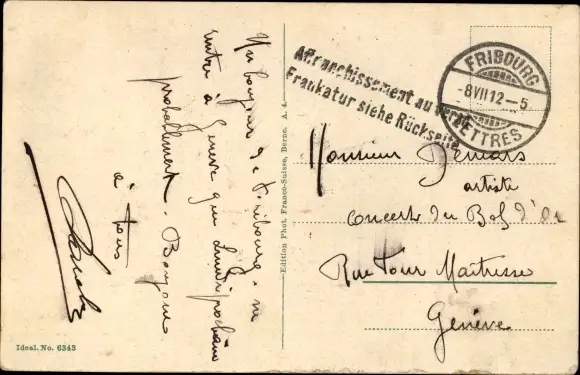 Un bonjour de Fribourg. ne
rentre à Genève que Lundi prochain
probablement. Bonjour
à tous
Ideal. No. 6343
Edition Phot. Franco-Suisse, Berne. A. A.
Affranchissement au verso
Frankatur siehe Rückseite
FRIBOURG
-8 VII 12-5
LETTRES
Monsieur Demars
artiste
Concerts du Bol d'Or
Rue Tour Maîtresse
Genève